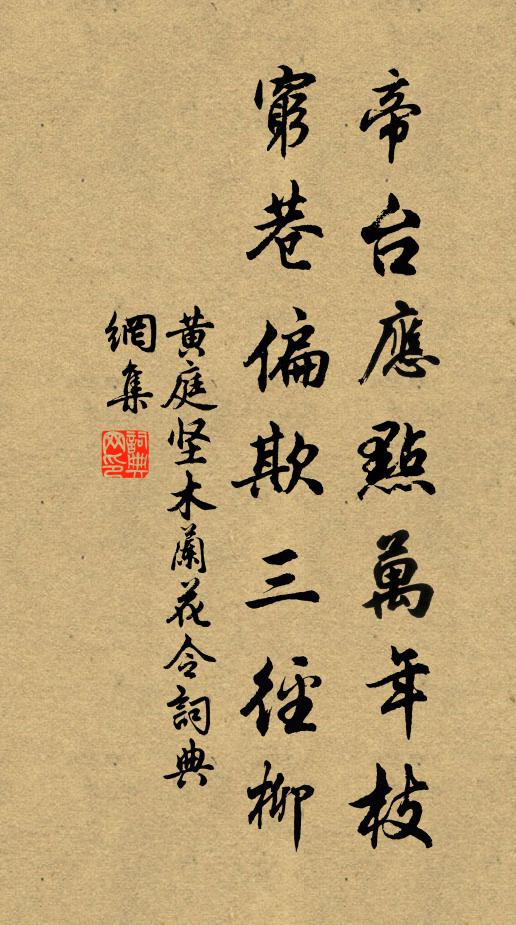 帝台應點萬年枝
窮巷偏欺三徑柳
黄庭坚木蘭花令詞典
網集
詞典網印